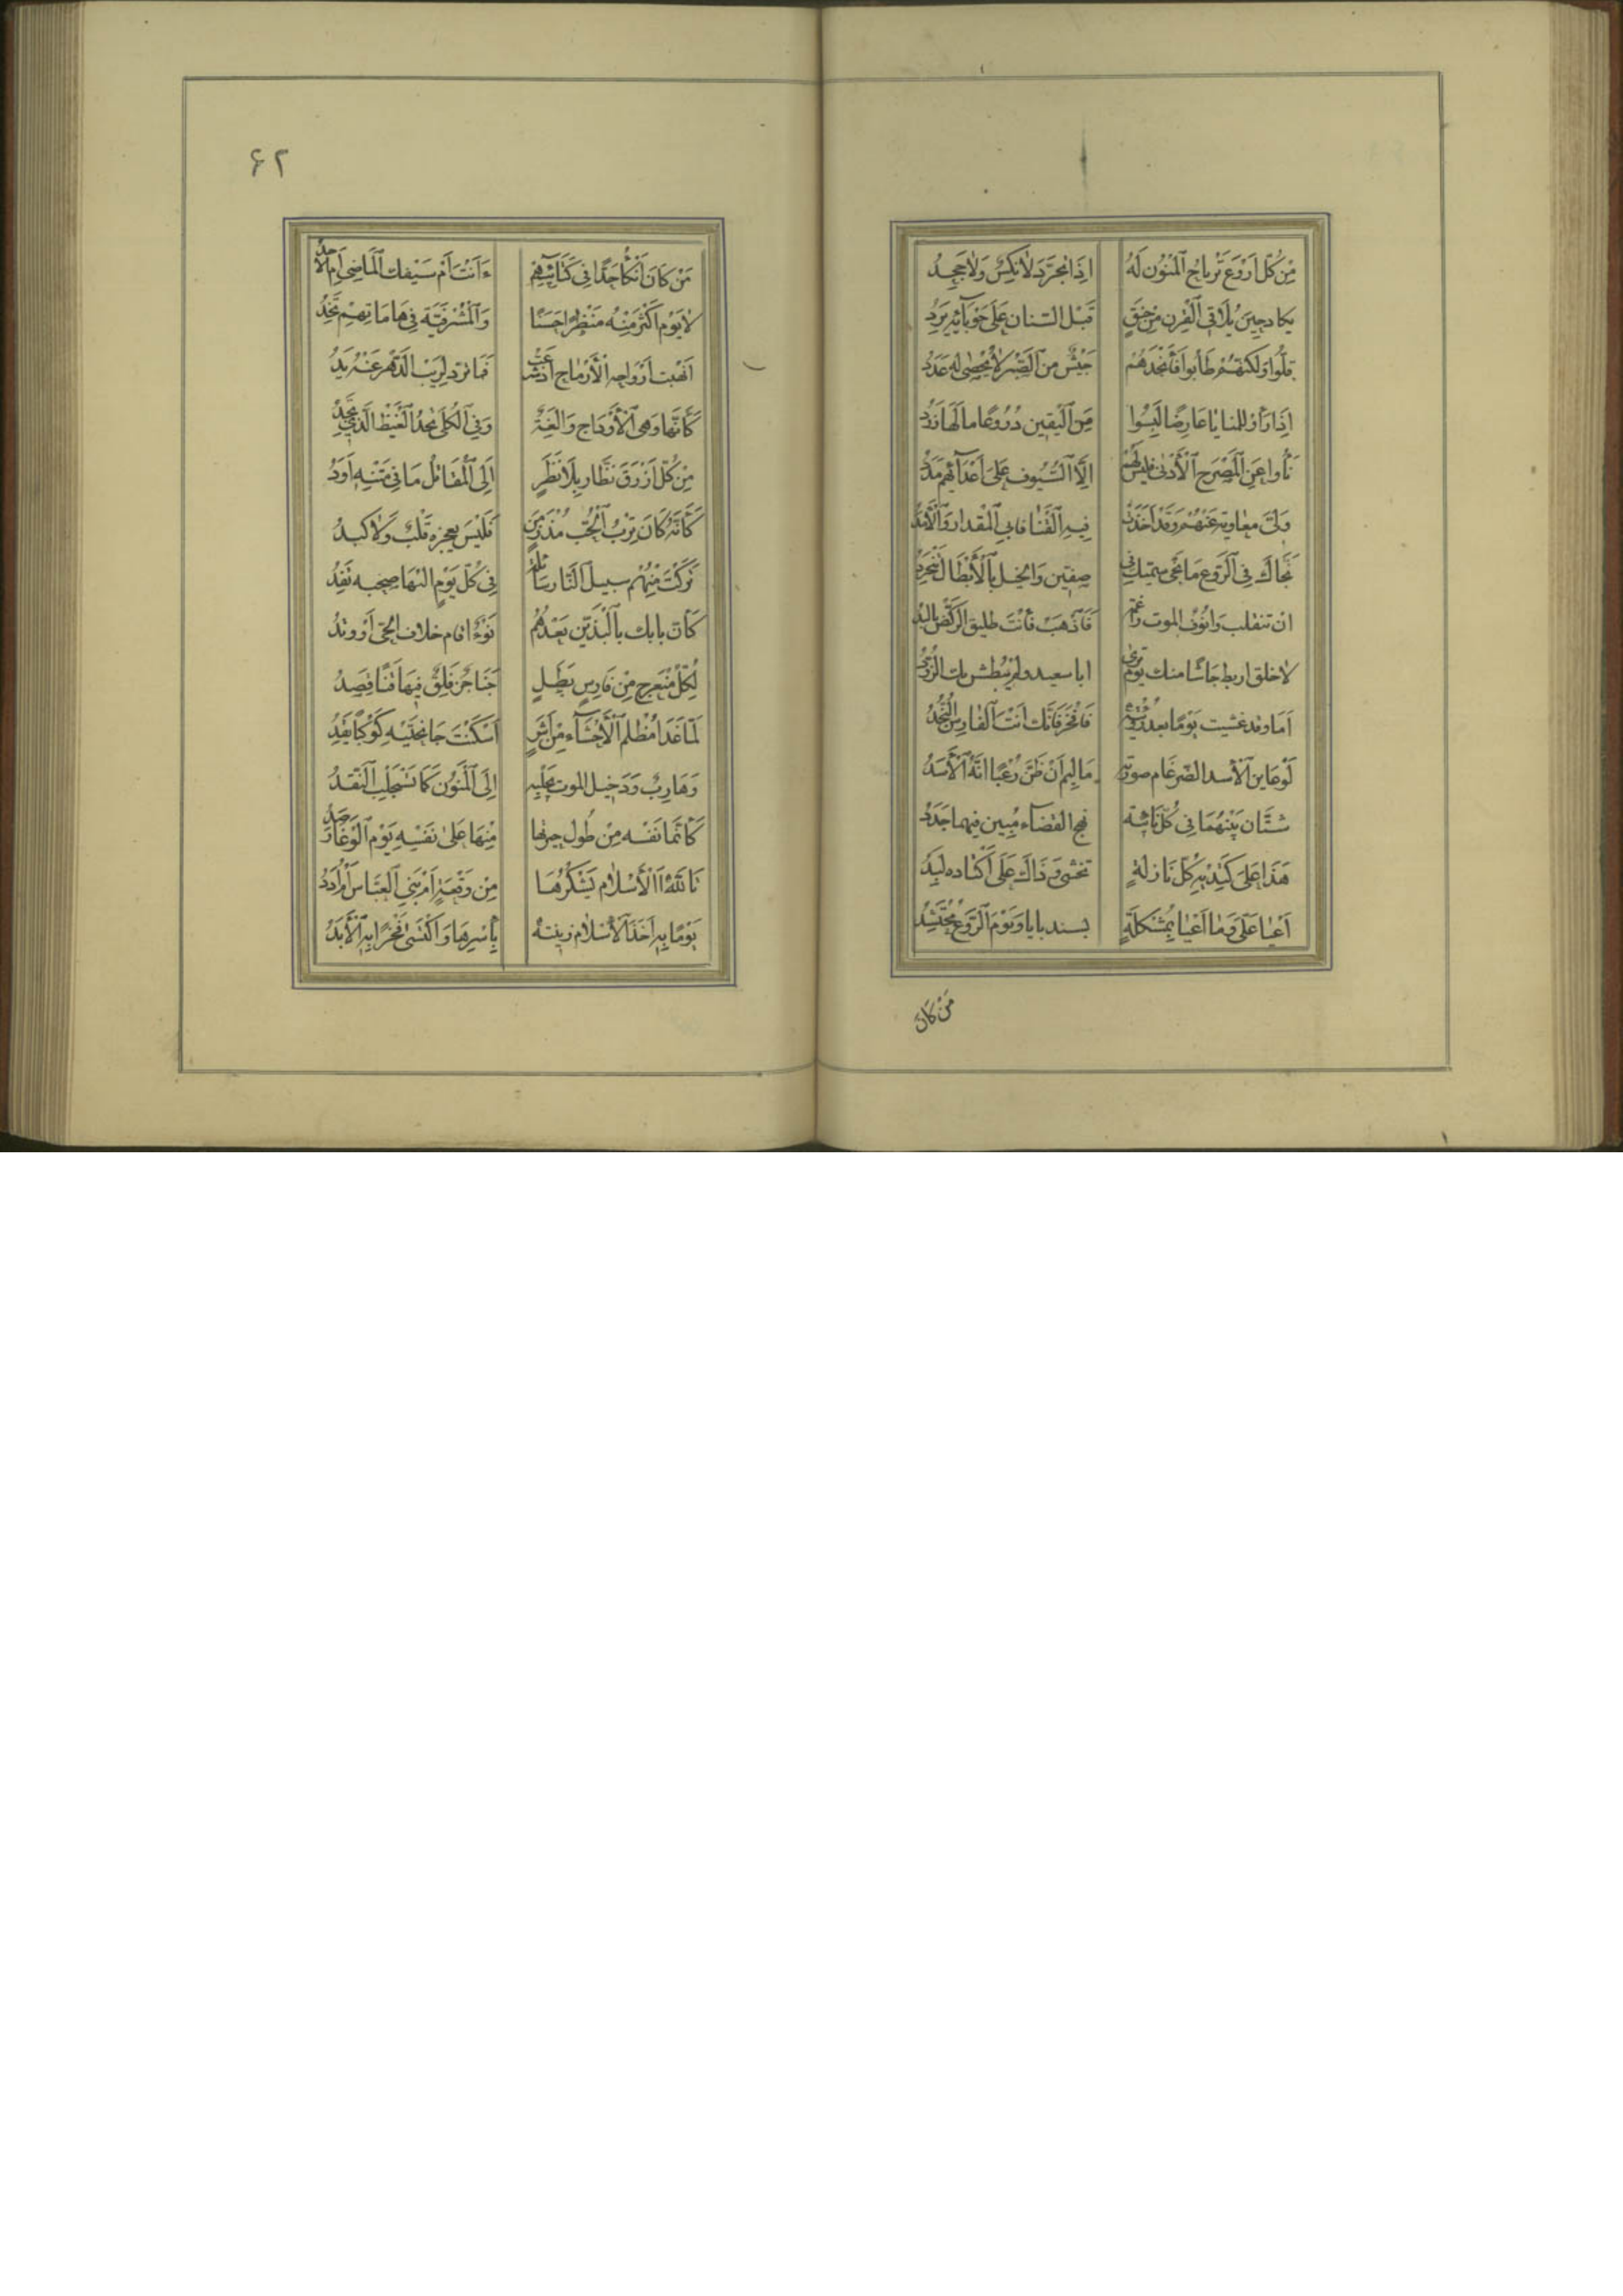 مِنْ كُلِّ اَرْوَعَ تَرْتاعُ الْمَنُونُ لَهُ اِذَا تَجَرَّدَ لانِكْسٌ وَلا جَحِدُ
يكاد حِينَ يُلاقِى الْقِرْنَ مِنْ حَنَقٍ قَبْلَ السّنان عَلَى حَوْبآئِهِ يَرِدُ
قَلُّوا وَلكِنَّهُمْ طَابُوا فَأَنْجَدَهُمْ جَيْشٌ من الصَّبْرِ لا يُحْصى لَهُ عَدَدُ
اِذَا رَأَوْا للمنايا عَارِضًا لَبِسُوا مِنَ الْيَقِين دُرُوعًا ما لَهَا زَرَدُ
نَأَوا عَنِ الْمَصْرَخِ الْأَدْنى فليس لَهُمْ اِلَّا السُّيُوف عَلَى اَعْدَآئِهِمْ مَدَدُ
وَلّى معاوية عَنْهُمْ وَقَدْ اَخَذَتْ فِيهِ الْقَنَا فابى الْمِقْدار وَالْأَمَدُ
نَجَّاكَ فِى الرَّوْعِ مَا نَجّى سميّك فِى صِفّين وَالخيل بِالْأَبْطَالِ تَنْجَرِدُ
ان تنفلت وَانُوفُ الموت راغمة فَاذْهَبْ فَأَنْتَ طليق الرَّكْض يالبد
لا خلق اربط جَاشًا منك يَوْمَ تَرى ابا سعيد ولم يَبْطِش بك الزُّؤُدُ
اَمَا وقد عشت يَوْمًا بعد رُؤْيَتِهِ فَافْخَرْ فَإِنَّكَ اَنْتَ الْفَارِسُ النَّجُدُ
لَوْ عَاينَ الْأَسد الضّرغَام صورته مَا لِيمَ اَنْ ظَنَّ رُعْبًا اَنَّهُ الْأَسَدُ
شَتَّان بَيْنَهُمَا فِى كُلِّ نَائِبَة نهج القضاء مُبِين فيهما جَدَدُ
هَذَا عَلَى كَتِدَيْهِ كُلّ نَازلَةٍ تخشى وَذَاكَ عَلَى أَكْتاده لُبَدُ
اَعْيَا عَلَىَّ وَمَا اَعْيَا بِمُشْكِلَةٍ بسندبايا وَيَوْمُ الرَّوْعِ مُحْتَشِدُ
مَنْ كَانَ
٦٢
مَنْ كَانَ أَنْكَأَ حَدًّا فِى كَتَآئِبِهِمْ ءَاَنْتَ اَمْ سَيْفُكَ الْمَاضِى اَمِ الأَحَدُ
لا يَوْمَ اَكْثَرَ مِنْهُ مَنْظَرًا حَسَنًا وَالْمَشْرَفِيَّة فِى هَامَاتِهِمْ تَخِدُ
اَنْهَبْتَ اَرْوَاحَهُ الْأَرْمَاحَ اذ شرعت فَما تردّ لِرَيْبِ الدَّهْرِ عَنْهُ يَدُ
كَأَنَّها وَهى الْأَوْدَاج وَالِغَةٌ وَفِى الْكُلَى تجد الْغَيْظَ الَّذِى نَجِدُ
مِنْ كُلِّ اَزْرَقَ نَظَّار بِلَا نَظَرٍ اِلَى الْمَقَاتِلِ مَا فِى مَتْنِهِ اَوَدُ
كَأَنَّهُ كَانَ تِرْبَ الْحُبّ مُذْ زَمَنٍ فَلَيْسَ يعجزه قَلْبٌ وَلا كَبِدُ
تَرَكْتَ مِنْهُمْ سبيل النَّار سَابلة فِى كُلِّ يَوْمٍ اليْهَا عصبه تَفِدُ
كَأَنَّ بابك بِالْبَذَّيْن بَعْدَهُمُ نُؤْىٌ اقام خلاف الحىّ اَوْ وتدُ
لِكُلِّ مُنْعَرج مِنْ فَارِسٍ بَطَلٍ جَنَاجِنٌ فِلَقٌ فِيهَا قَنًا قِصَدُ
لَمّا غَدَا مُظْلِم الْأَحْشَآءِ مِنْ اَشَرٍ اَسْكَنْتَ جَانحَتَيْهِ كَوْكَبًا يَقِدُ
وَهَارِبٌ وَدَخيل الموت يَجْلِبُهُ اِلَى الْمَنُون كَمَا يُسْتَجْلَبُ النَّقَدُ
كَأَنَّما نَفْسه مِنْ طُول حيرتها مِنْهَا عَلَى نَفْسِهِ يَوْمَ الْوَغَا رَصَدُ
تَاللّهِ اَلْأَسْلام يَشْكُرُهَا مِنْ وَقْعَةٍ اَمْ بَنِى الْعَبَّاس اَمْ اُدَدُ
يَوْمًا بِهِ اَخَذَ الْأَسْلام زينته بِأَسْرِهَا وَاكْتَسى فَخْرًا بِهِ الْأَبَدُ